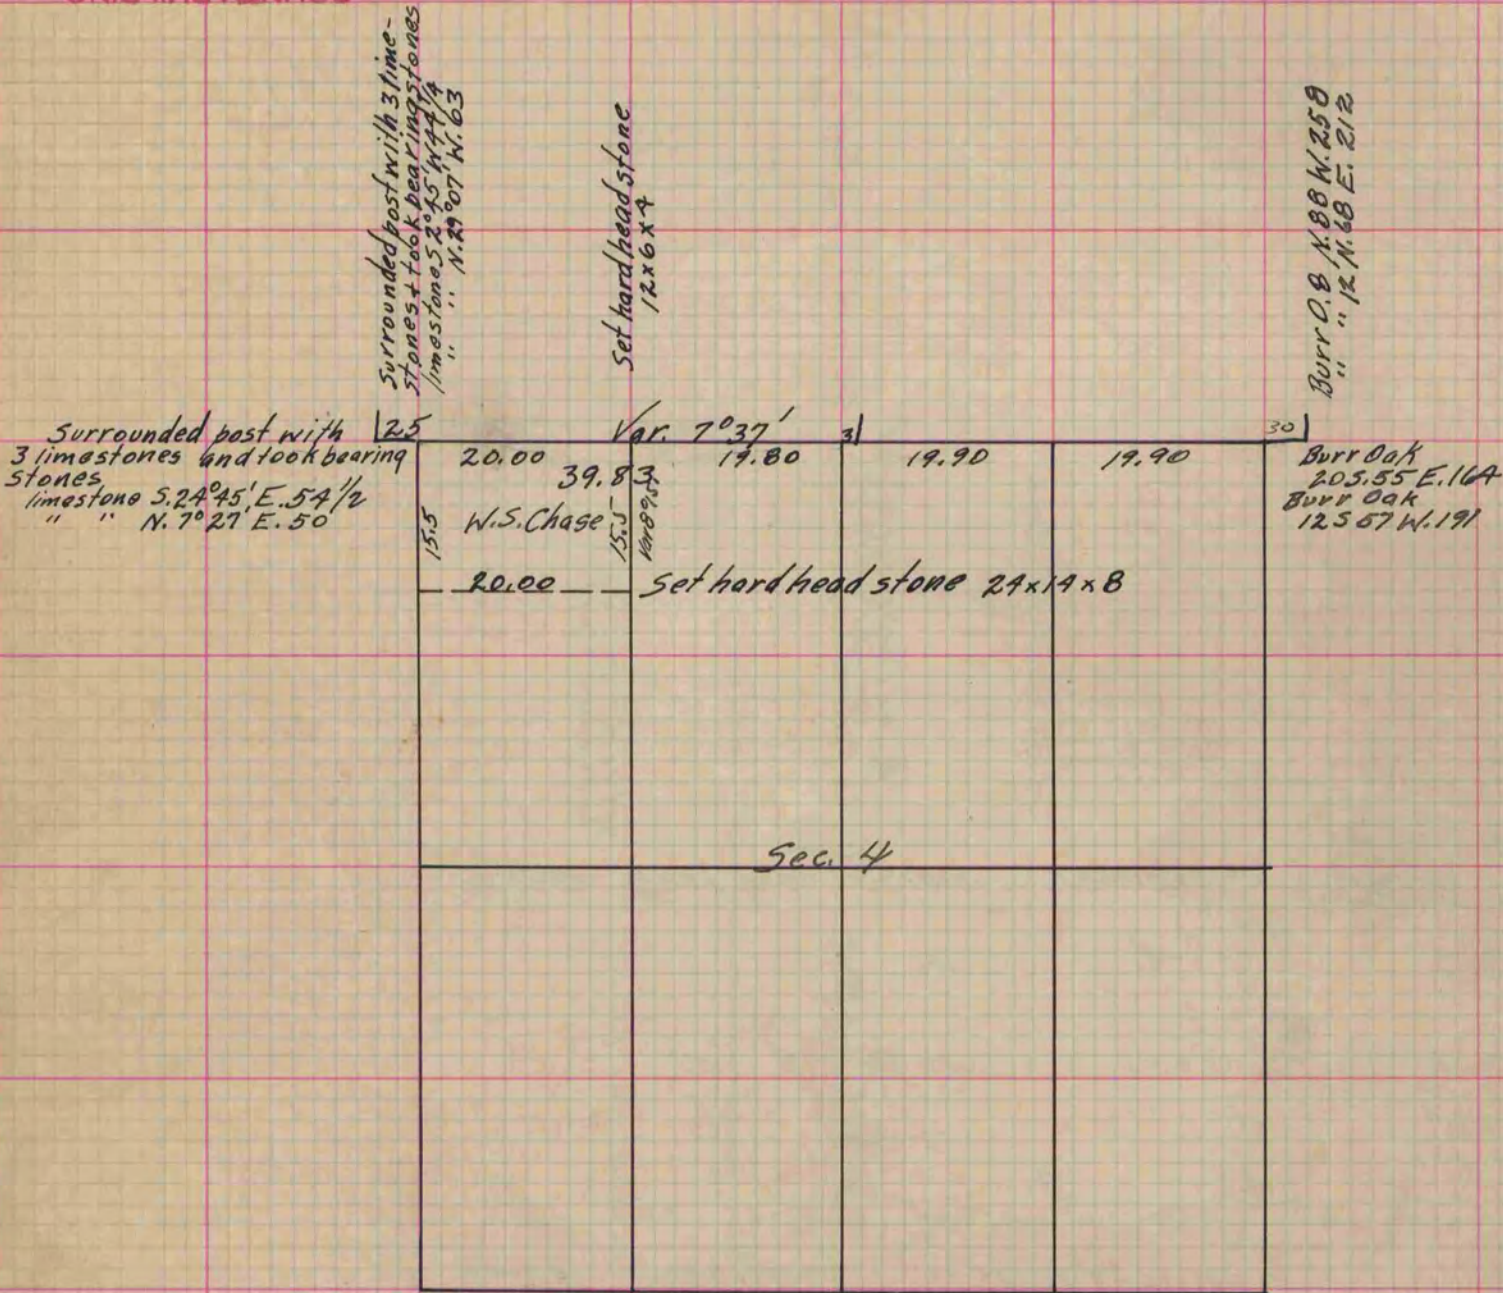 Surrounded post with 3 lime-
stones & took bearing stones
limestone S 2°45' W 44 1/4
" " N. 29°07' W. 63
Set hard head stone
12 x 6 x 4
Burr O. 8 N. 88 W. 258
" " 12 N. 68 E. 212
Surrounded post with
3 limestones and took bearing
stones
limestone S. 24°45' E. 54 1/2
" " N. 7°27 E. 50
25
Var. 7°37'
31
30
20.00
39.83
19.80
19.90
19.90
Burr Oak
20 S. 55 E. 164
Burr Oak
12 S 67 W. 191
15.5
W.S. Chase
15.5
20.00
Set hard head stone 24 x 14 x 8
Sec. 4